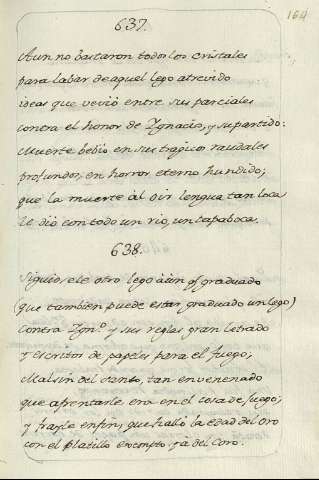 164
637.
Aun no bastaron todos los cristales
para labar de aquel lego atrevido
ideas que vevió entre sus parciales
contra el honor de Ignacio, y su partido:
Muerte bebio en sus tragicos raudales
profundos, en horror eterno hundido;
que la muerte àl oir lengua tan loca
le diò con todo un rio, un tapaboca.
638.
Siguiosele otro lego àùn q̃ graduado
(que tambien puede estar graduado un lego)
Contra Ign.º y sus reglas gran letrado
Y Escritor de papeles para el fuego;
Malsin del Santo, tan envenenado
que afrentarle era en el cosa de juego;
y frayle en fin, que hallò la edad del oro
con el platillo exempto ya del Coro.